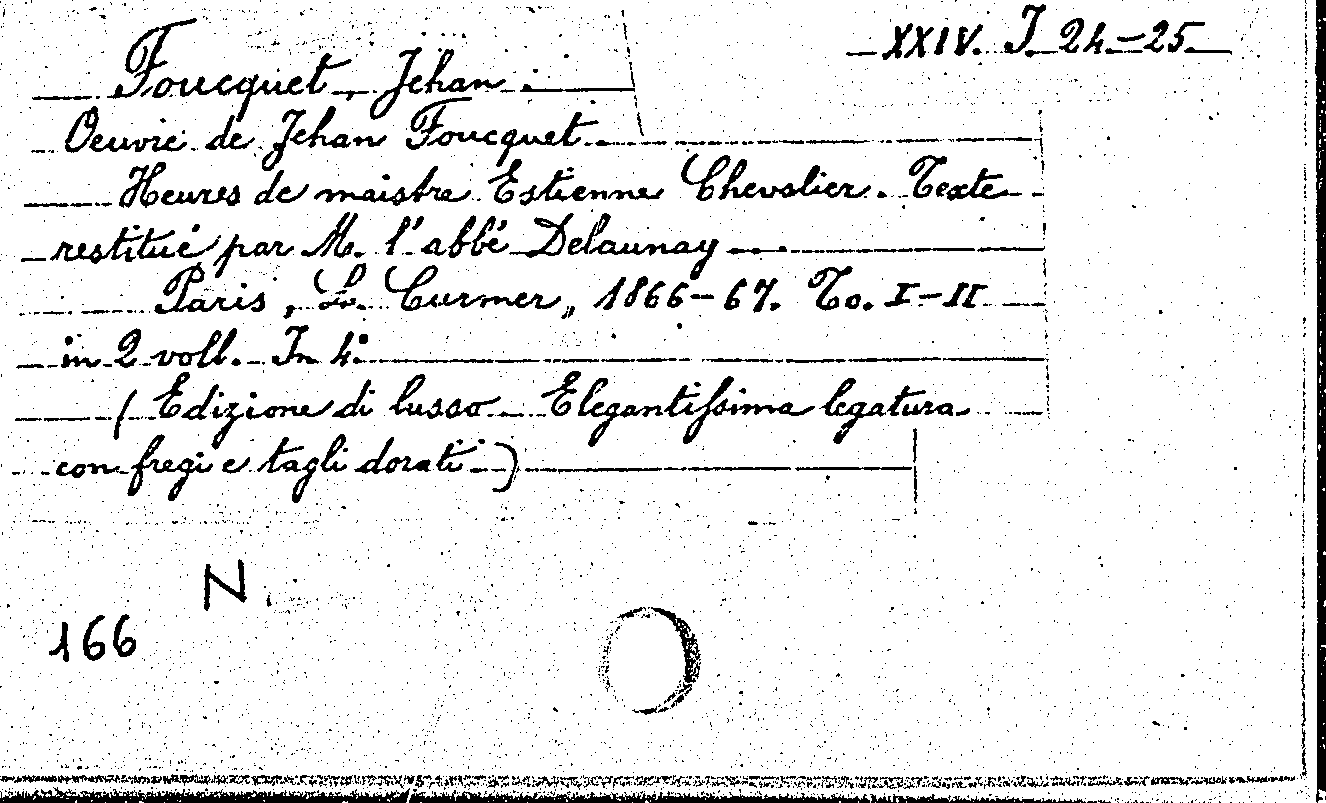 XXIV. I. 24-25
Foucquet, Jehan.
Oeuvre de Jehan Foucquet.
Heures de maistre Estienne Chevalier. Texte
restitué par M. l'abbé Delaunay ...
Paris, L. Curmer, 1866-67. To. I-II
in 2 voll. In 4°
(Edizione di lusso. Elegantissima legatura
con fregi e tagli dorati.)
N.
166